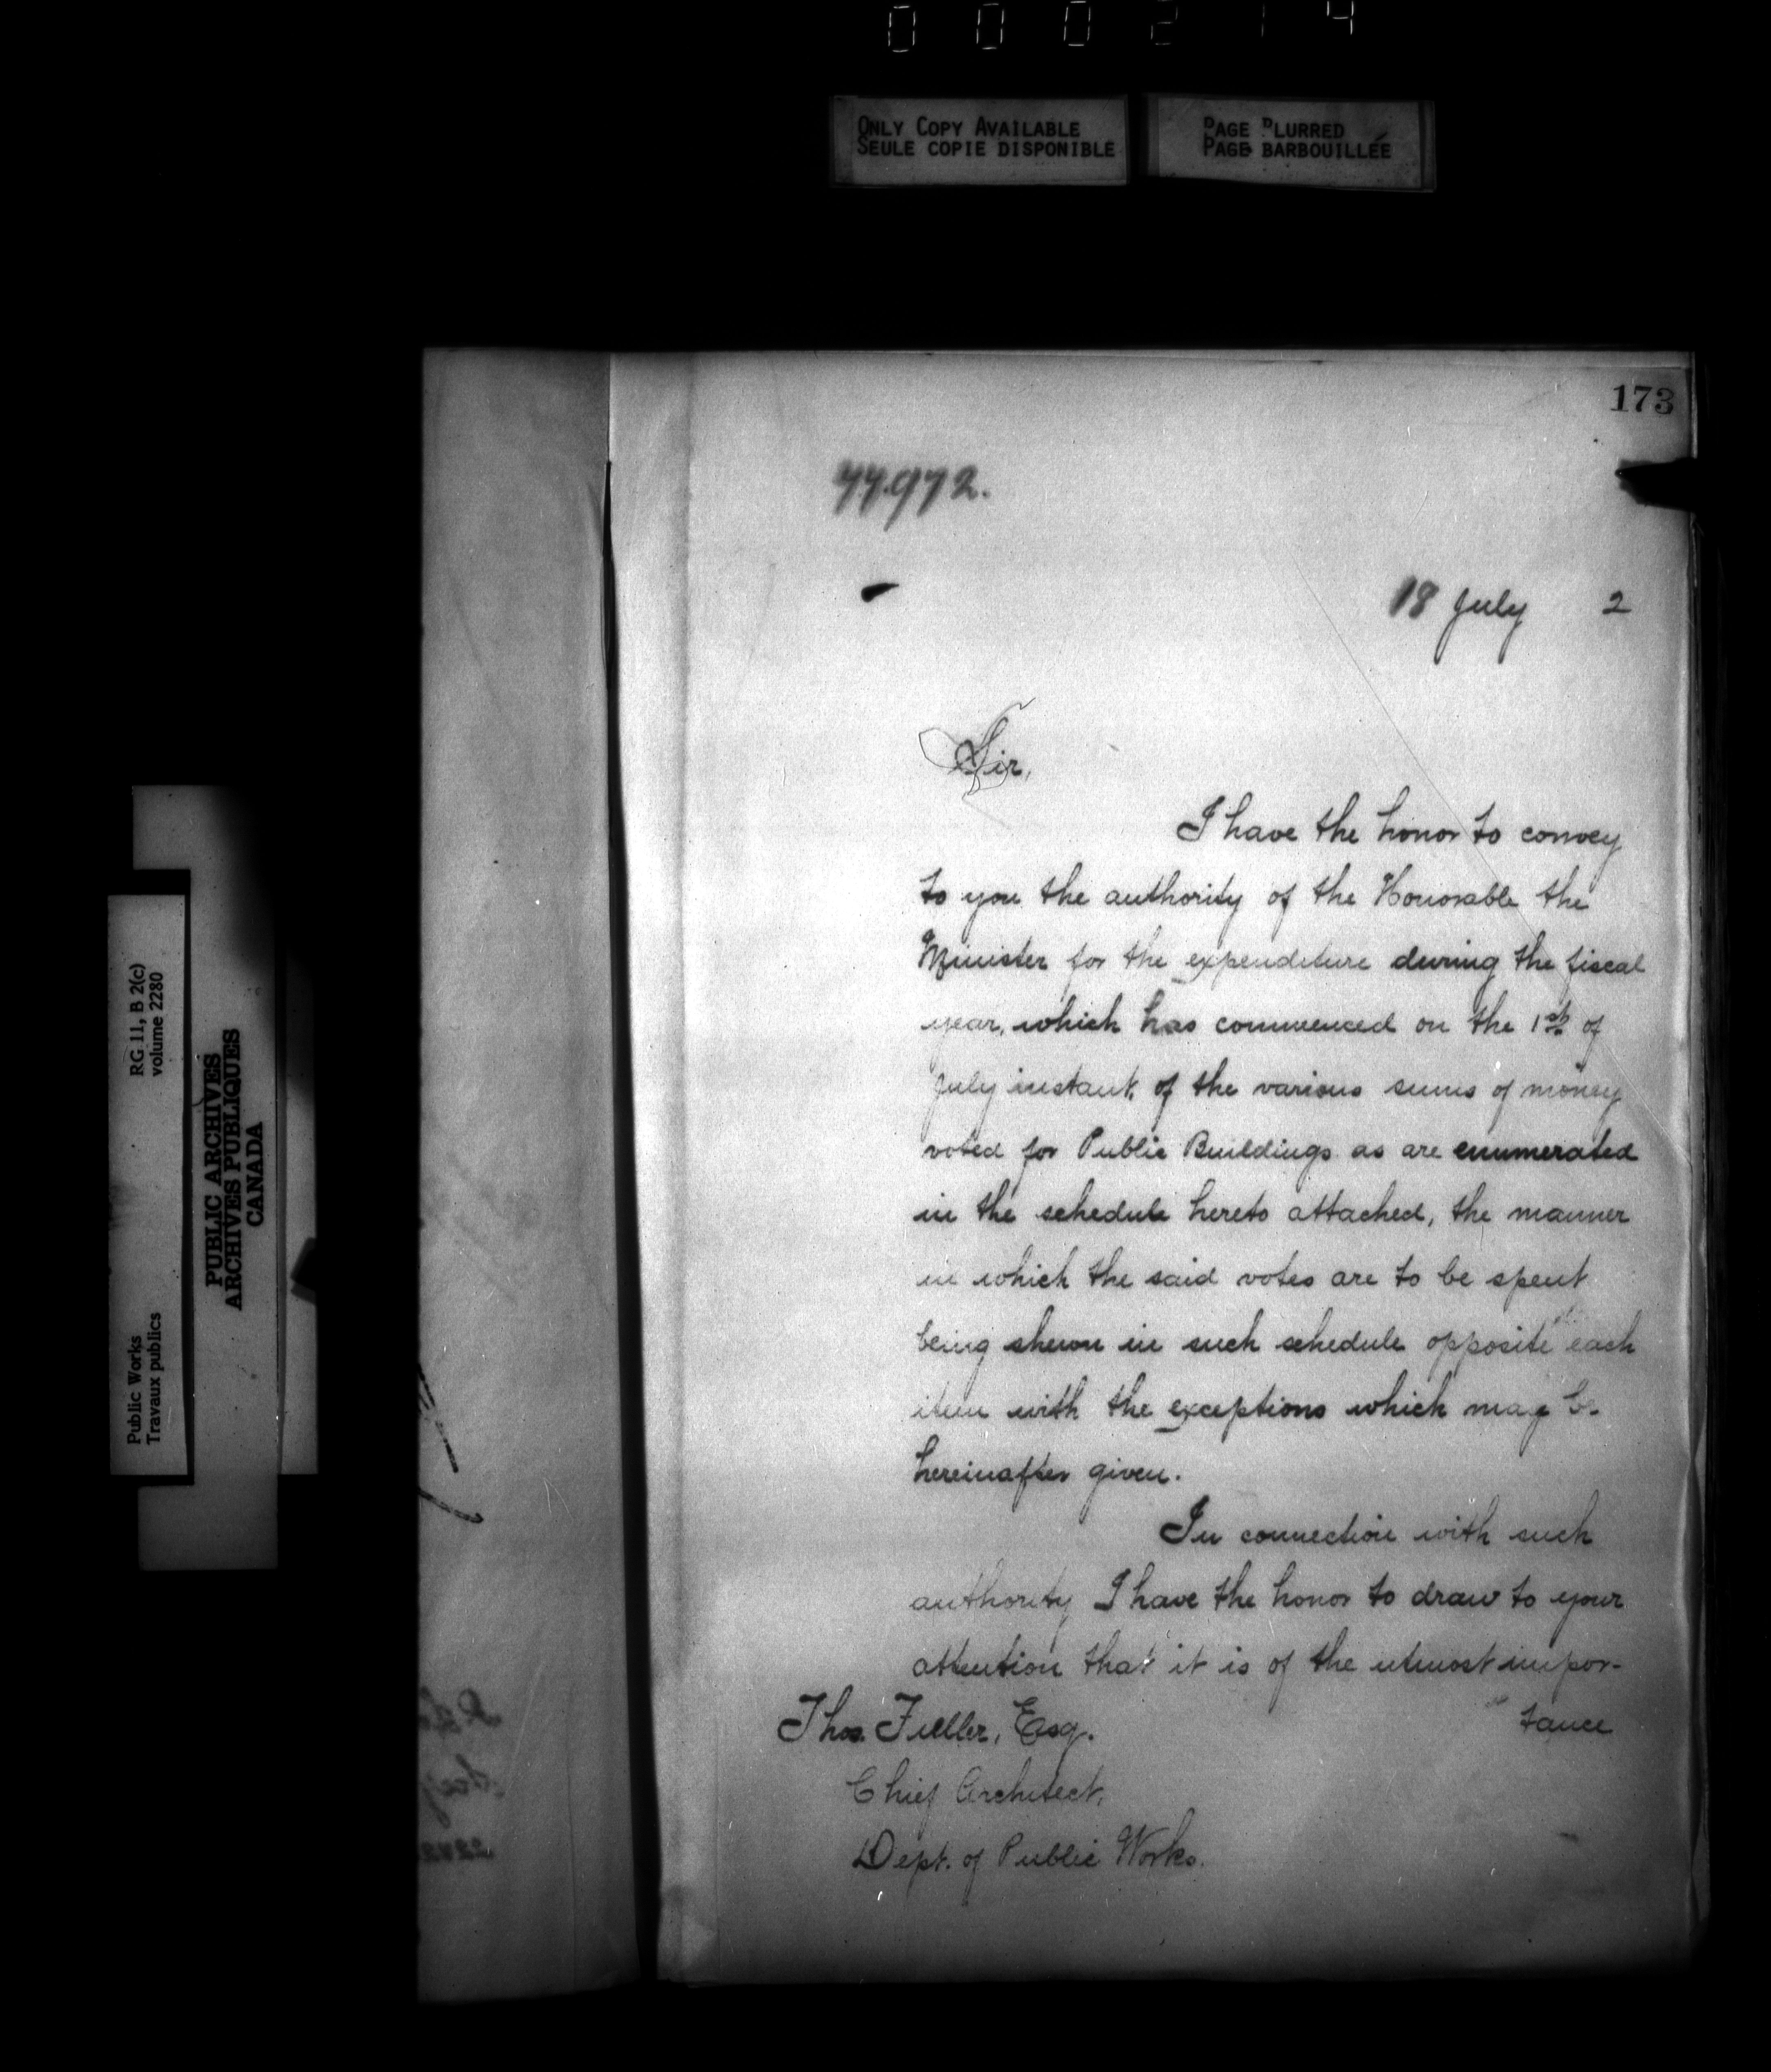 000214
ONLY COPY AVAILABLE
SEULE COPIE DISPONIBLE
PAGE BLURRED
PAGE BARBOUILLÉE
RG 11, B 2(c)
volume 2280
Public Works
Travaux publics
PUBLIC ARCHIVES
ARCHIVES PUBLIQUES
CANADA
173
77972.
18 July 2
Sir,
I have the honor to convey
to you the authority of the Honorable the
Minister for the expenditure during the fiscal
year, which has commenced on the 1st of
July instant, of the various sums of money
voted for Public Buildings as are enumerated
in the schedule hereto attached, the manner
in which the said votes are to be spent
being shewn in such schedule opposite each
item with the exceptions which may be
hereinafter given.
In connection with such
authority I have the honor to draw to your
attention that it is of the utmost impor-
tance
Thos. Fuller, Esq.
Chief Architect,
Dept. of Public Works.